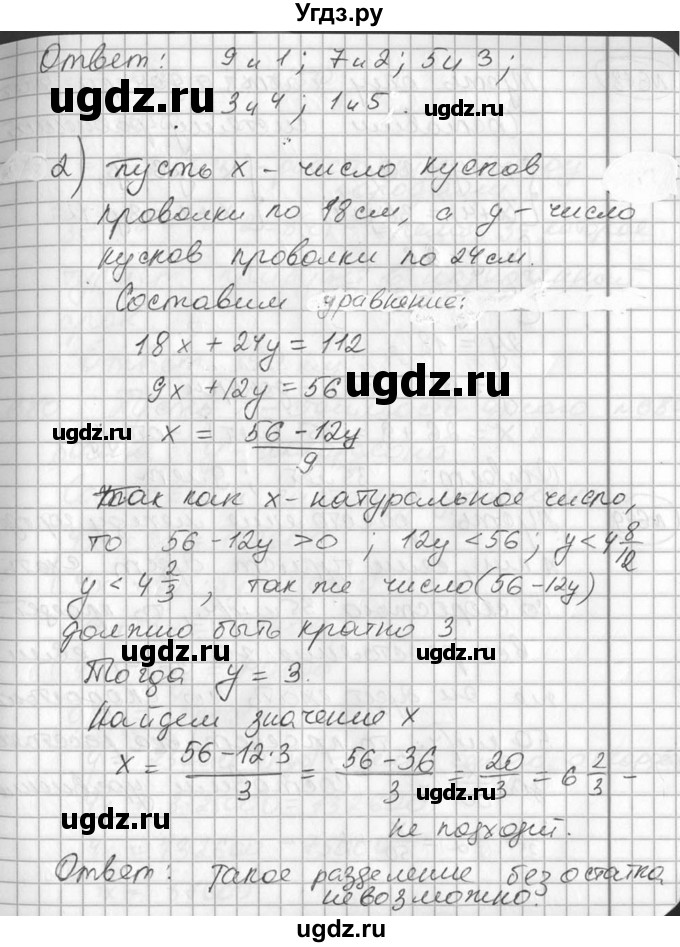 Угдз.ру
Ответ: 9 и 1; 7 и 2; 5 и 3;
ugdz.ru 3 и 4; 1 и 5. ugdz.ru
2) Пусть x - число кусков
проволки по 18 см, а y - число
кусков проволки по 24 см.
Составим уравнение:
18x + 24y = 112
9x + 12y = 56 ugdz.ru
ugdz.ru x = (56 - 12y)/9
так как x - натуральное число,
то 56 - 12y > 0; 12y < 56; y < 4 8/12
y < 4 2/3, так же число (56 - 12y)
должно быть кратно 3
ugdz.ru ugdz.ru
Тогда y = 3.
Найдем значение x
x = (56 - 12·3)/3 = (56 - 36)/3 = 20/3 = 6 2/3 -
ugdz.ru ugdz.ru
не подходит.
Ответ: такое разделение без остатка
невозможно.
ugdz.ru